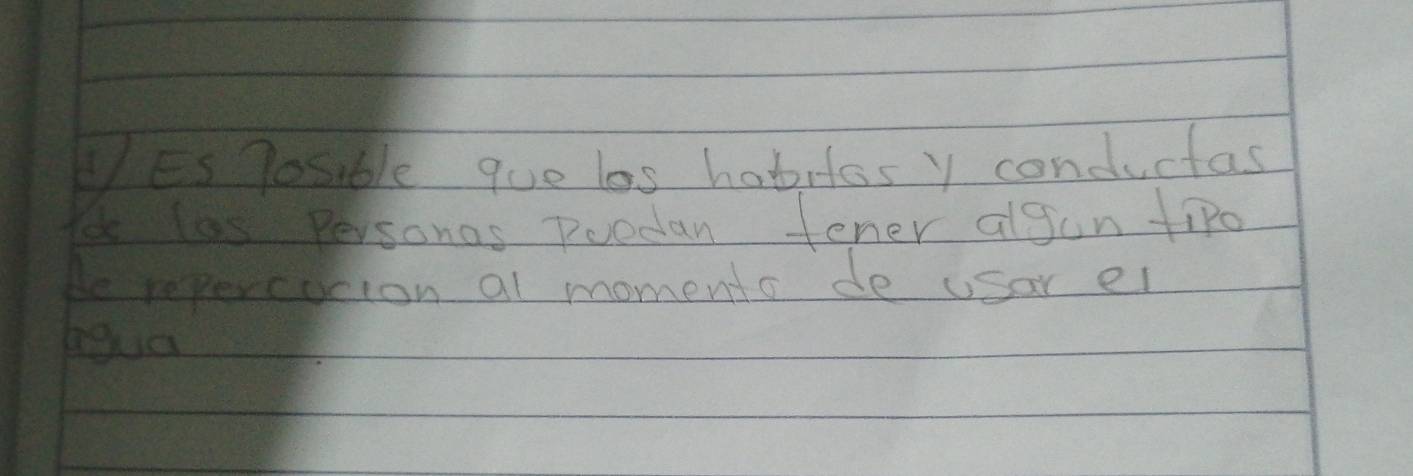 1) Es Posible que los habitos y conductas
de las Personas Puedan tener algun tipo
de repercucion al momento de usar el
agua